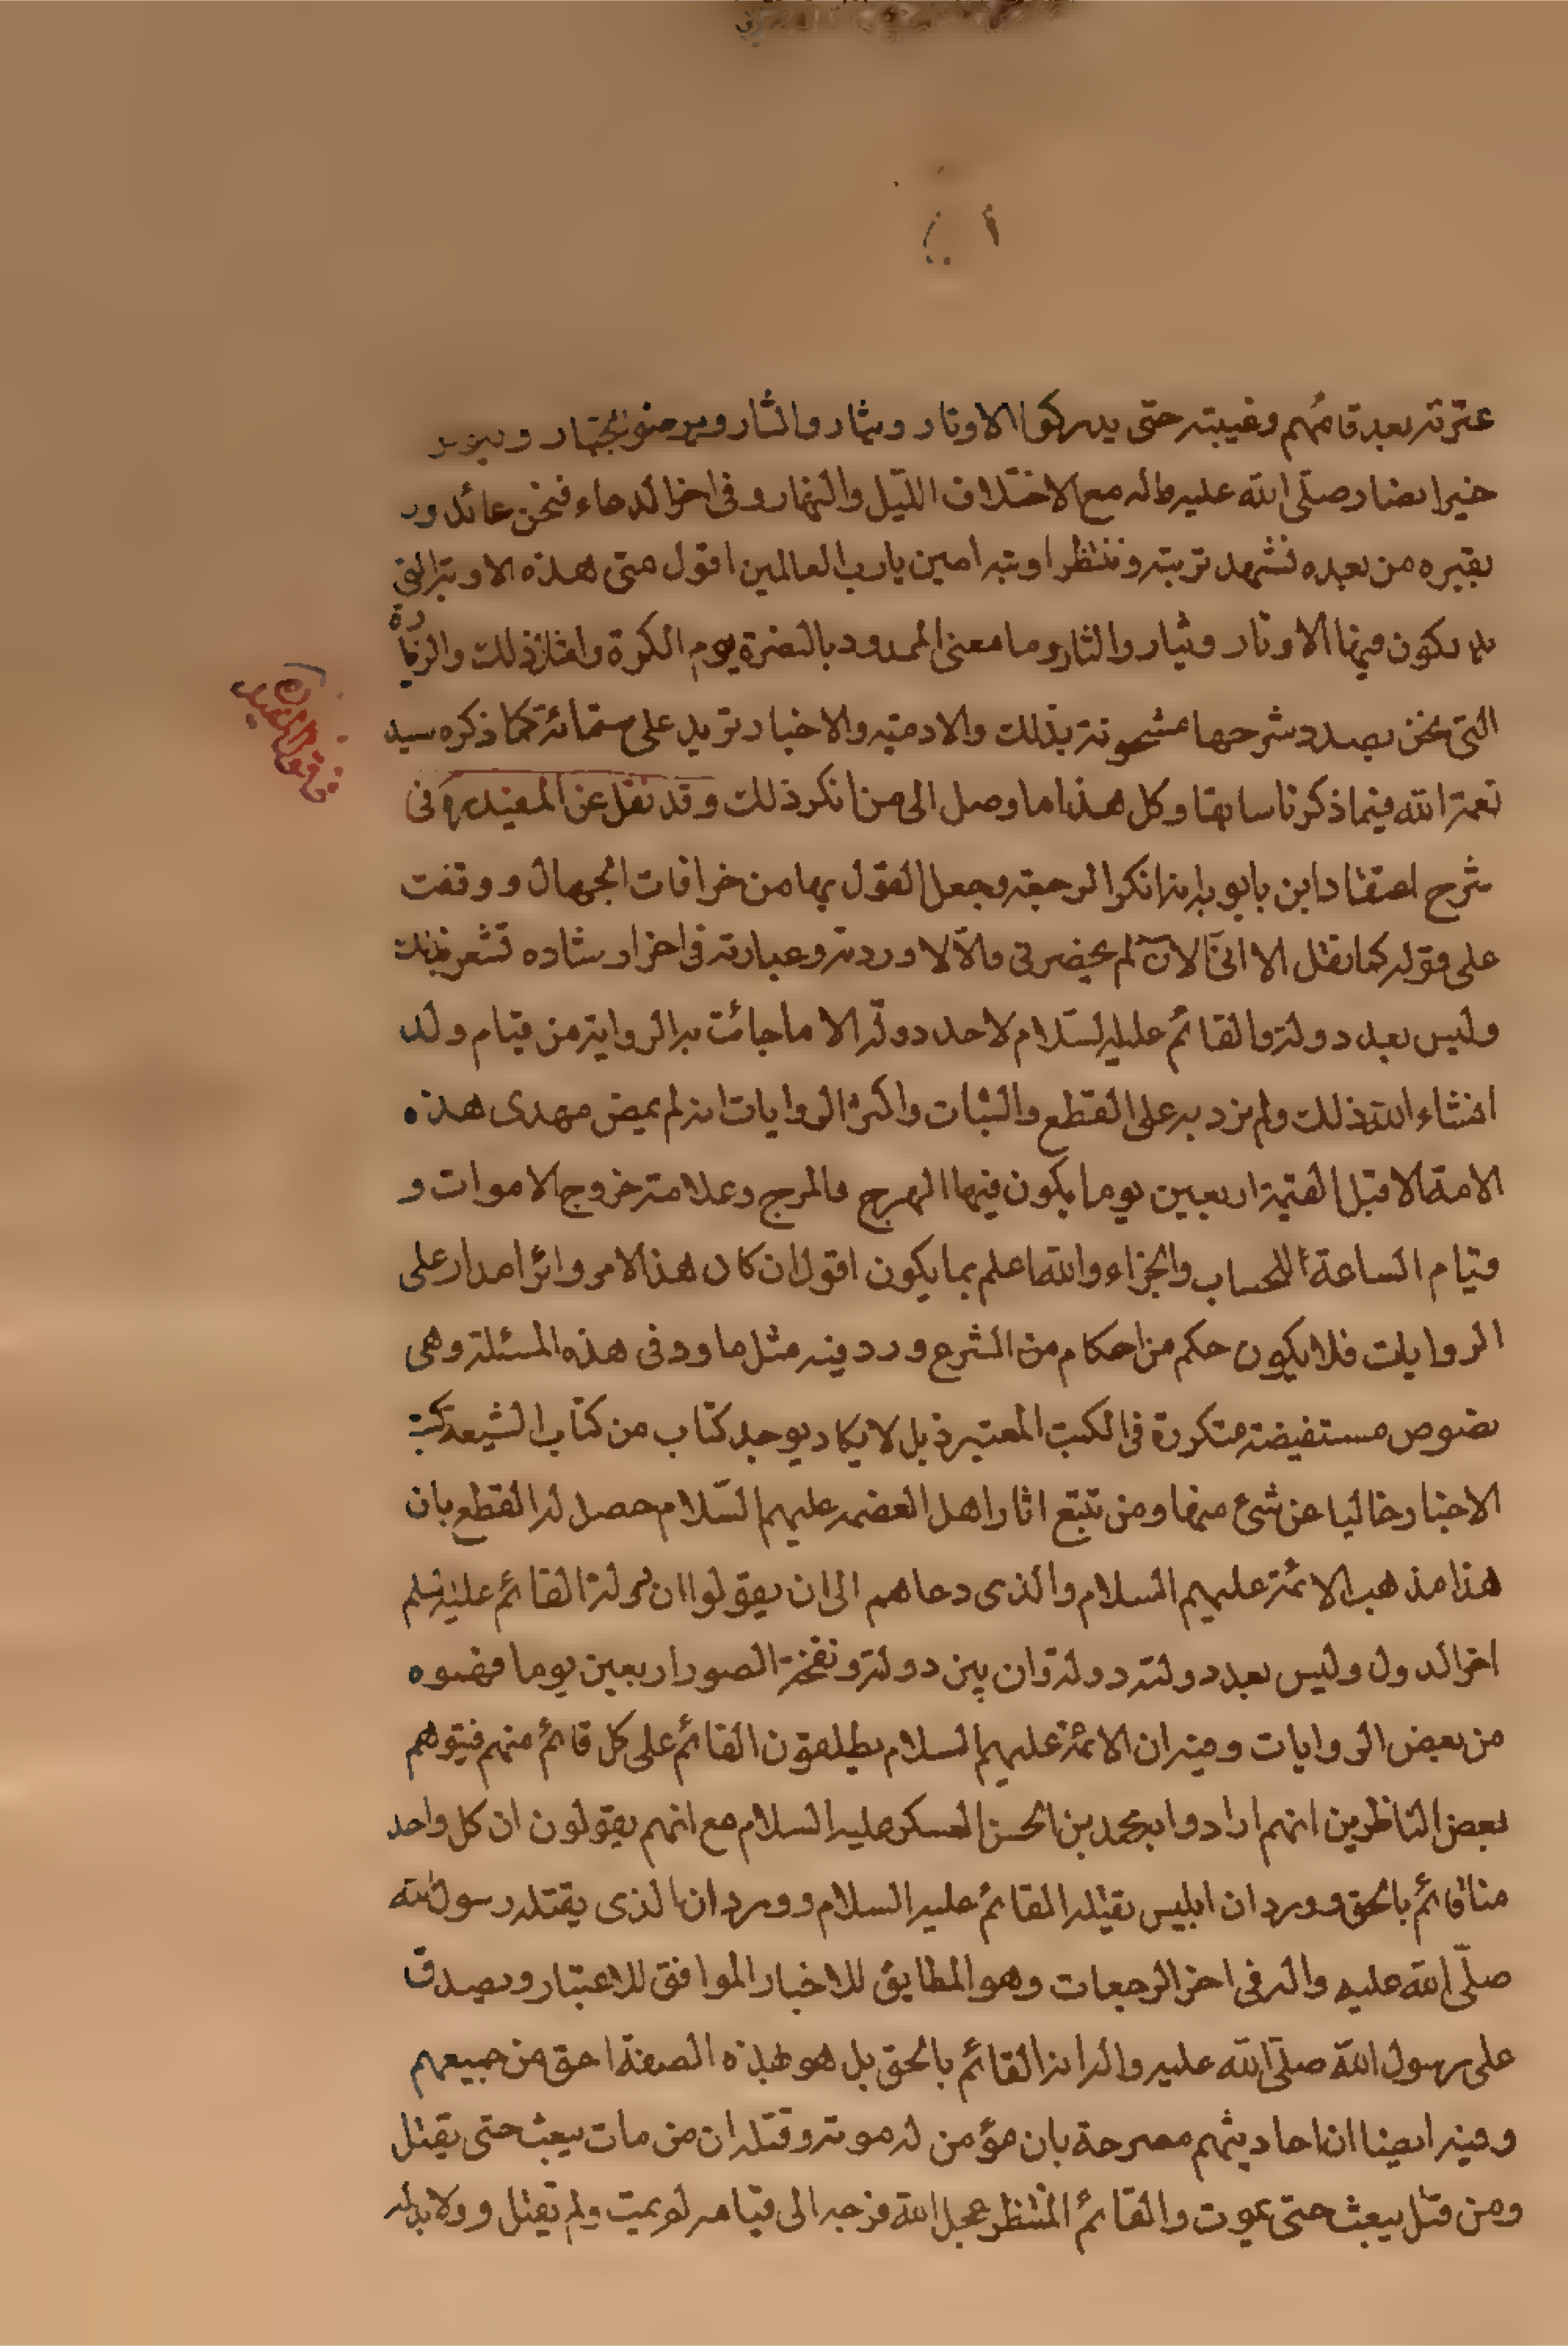 عترته بعد قائمهم وغيبته حتى يدركوا الاوتار ويثاروا الثار ويرضوا الجبار ويكونوا
خير انصار صلى الله عليه واله مع الاختلاف الليل والنهار وفى اخر الدعاء فنحن عائذون
بقبره من بعده نشهد تربته وننتظر اوبته امين يا رب العالمين اقول متى هذه الاوبة التى
يدركون فيها الاوتار ويثاروا الثار وما معنى الممدود بالنصرة يوم الكرة وامثال ذلك والزيارة
التى نحن بصدد شرحها مشحونة بذلك والادعية والاخبار تزيد على ستمائة كما ذكره سيد
نعمة الله فيما ذكرنا سابقا وكل هذا ما وصل الى من انكر ذلك وقد نقل عن المفيد ره فى
شرح اعتقاد ابن بابويه انه انكر الرجعة وجعل القول بها من خرافات الجهال ووقفت
على قوله كما نقل الا انى الان لم يحضرنى والا لاوردته وعبارته فى اخر ارشاده تشعر بذلك
وليس بعد دولة القائم عليه السلام لاحد دولة الا ما جائت به الرواية من قيام ولده
انشاء الله ذلك ولم يرد به على القطع والثبات واكثر الروايات انه لم يمض مهدى هذه
الامة الا قبل القيمة اربعين يوما يكون فيها الهرج والمرج وعلامة خروج الاموات و
قيام الساعة للحساب والجزاء والله اعلم بما يكون اقول ان كان هذا الامر وائرا مدار على
الروايات فلا يكون حكم من احكام من الشرع ورد فيه مثل ما ورد فى هذه المسئلة وهى
نصوص مستفيضة متكررة فى الكتب المعتبرة بل لا يكاد يوجد كتاب من كتاب الشيعة كتب
الاخبار خاليا عن شئ منها ومن تتبع اثار اهل العصمة عليهم السلام حصل له القطع بان
هذا مذهب الائمة عليهم السلام والذى دعاهم الى ان يقولوا ان دولة القائم عليه السلم
اخر الدول وليس بعد دولته دولة وان بين دولته ونفخة الصور اربعين يوما فهموه
من بعض الروايات وفيه ان الائمة عليهم السلام يطلقون القائم على كل قائم منهم فيتوهم
بعض الناظرين انهم ارادوا به محمد بن الحسن العسكر عليه السلام مع انهم يقولون ان كل واحد
منا قائم بالحق وورد ان ابليس يقتله القائم عليه السلام وورد ان الذى يقتله رسول الله
صلى الله عليه واله فى اخر الرجعات وهو المطابق للاخبار الموافق للاعتبار ويصدق
على رسول الله صلى الله عليه واله انه القائم بالحق بل هو بهذه الصفة احق من جميعهم
وفيه ايضا ان احاديثهم مصرحة بان مؤمن له موته وقتله ان من مات يبعث حتى يقتل
ومن قتل يبعث حتى يموت والقائم المنتظر عجل الله فرجه الى قيامه لم يمت ولم يقتل وولا بد له